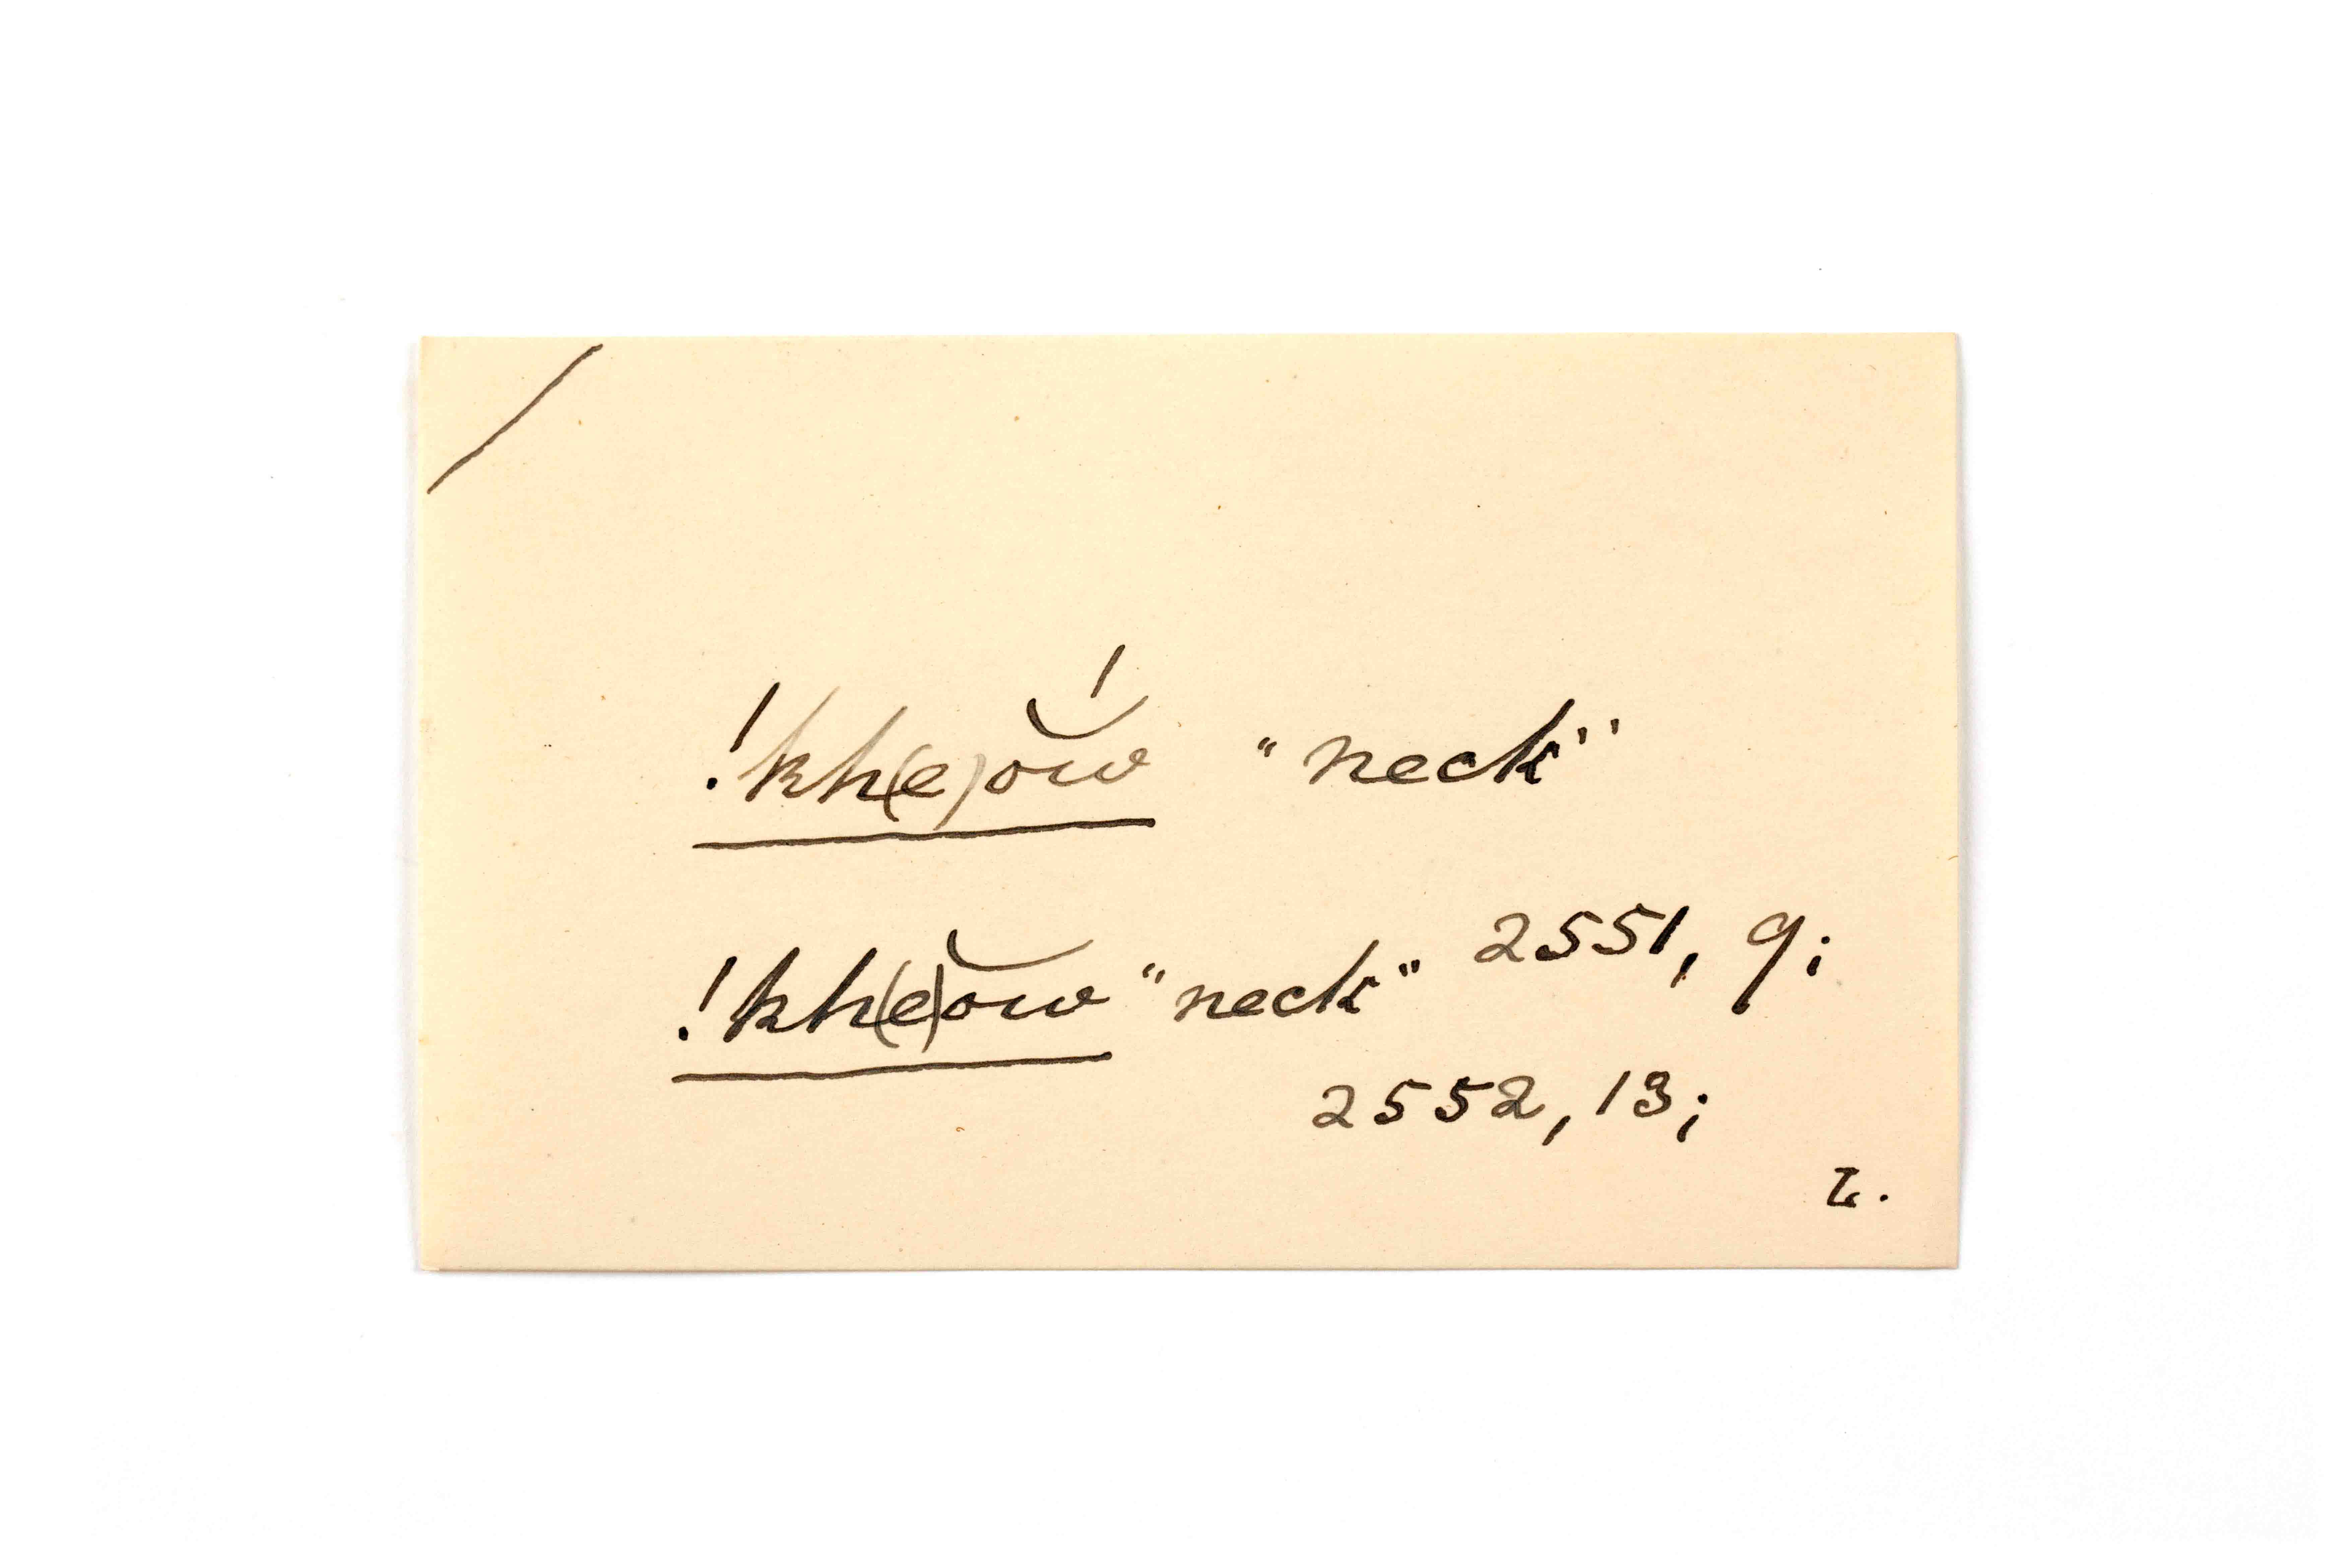 !kh(e)ŏ́w "neck"
!kh(e)ŏw "neck" 2551, 9;
2552, 13;
L.